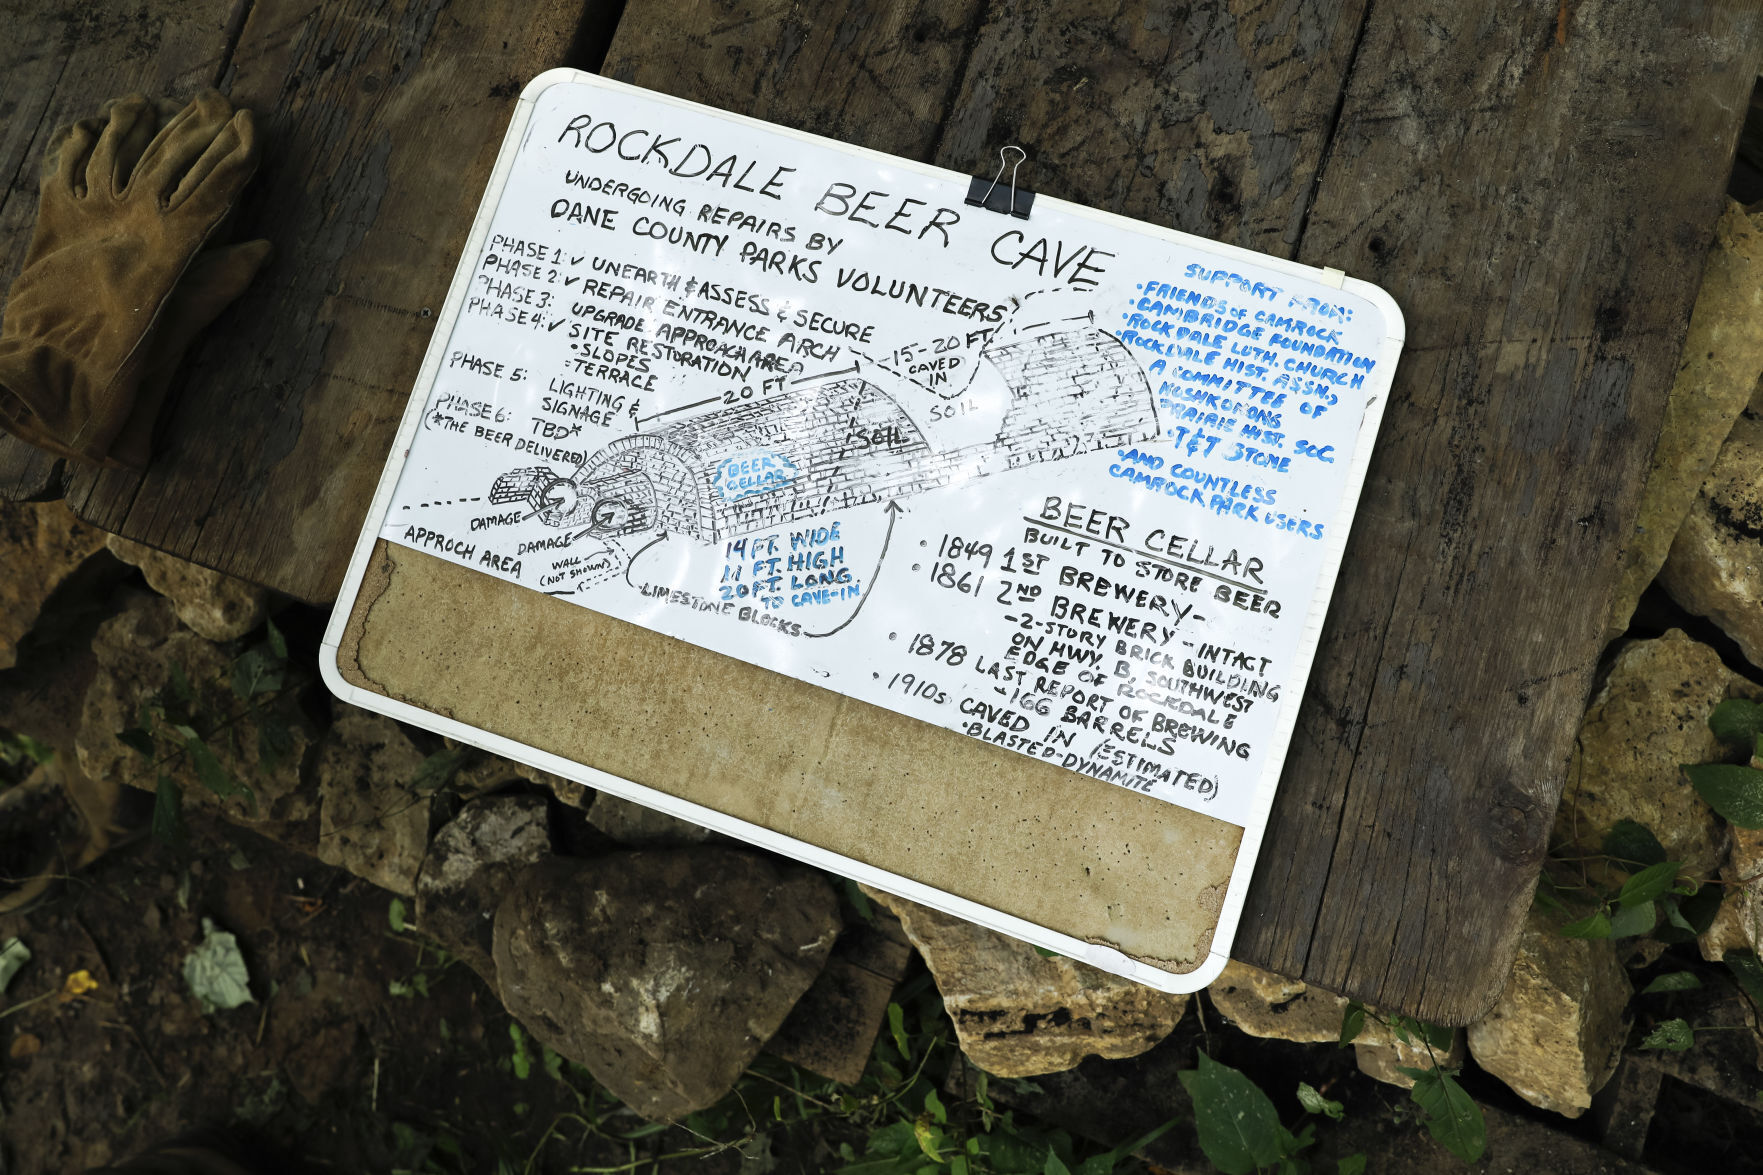 ROCKDALE BEER CAVE
UNDERGOING REPAIRS BY
DANE COUNTY PARKS VOLUNTEERS
PHASE 1: ✓ UNEARTH & ASSESS & SECURE
PHASE 2: ✓ REPAIR ENTRANCE ARCH
PHASE 3: UPGRADE APPROACH AREA
PHASE 4: ✓ SITE RESTORATION
• SLOPES
- TERRACE
PHASE 5: LIGHTING &
SIGNAGE
PHASE 6: TBD*
(*THE BEER DELIVERED)
SUPPORT FROM:
• FRIENDS OF CAMROCK
• CAMBRIDGE FOUNDATION
• ROCKDALE LUTH. CHURCH
• ROCKDALE HIST. ASSN.,
A COMMITTEE OF
KOSHKONONG
PRAIRIE HIST. SOC.
• T&T STONE
• AND COUNTLESS
CAMROCK PARK USERS
20 FT
15-20 FT
CAVED
IN
SOIL
SOIL
BEER
CELLAR
DAMAGE
DAMAGE
APPROCH AREA
WALL
(NOT SHOWN)
14 FT. WIDE
11 FT. HIGH
20 FT. LONG
TO CAVE-IN
LIMESTONE BLOCKS
BEER CELLAR
BUILT TO STORE BEER
• 1849 1ST BREWERY-
• 1861 2ND BREWERY - INTACT
-2-STORY BRICK BUILDING
ON HWY. B, SOUTHWEST
EDGE OF ROCKDALE
• 1878 LAST REPORT OF BREWING
-166 BARRELS
• 1910s CAVED IN (ESTIMATED)
• BLASTED-DYNAMITE